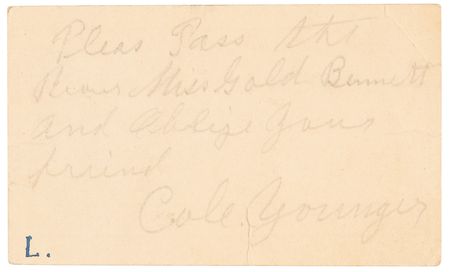 Pleas Pass the
Bearer Miss Gold Bennett
and Oblige Your
friend
Cole Younger
L.